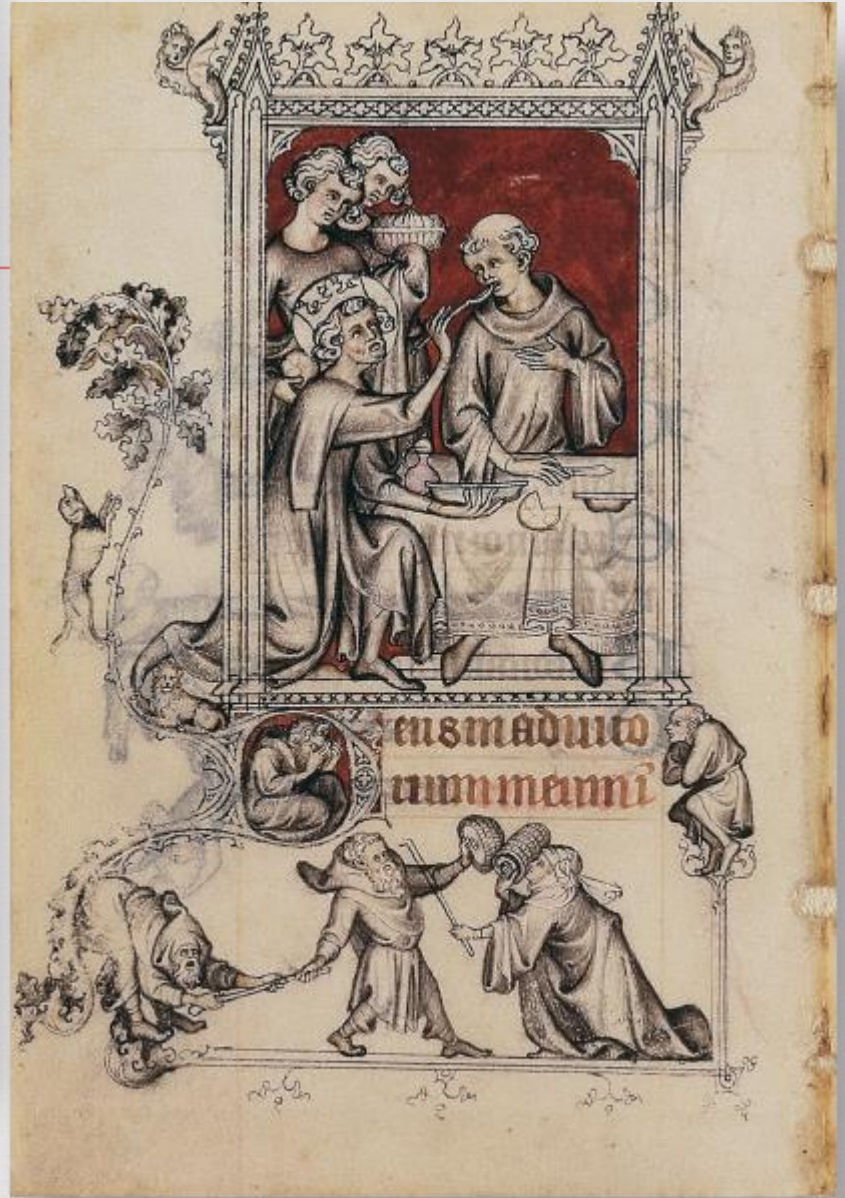 Deus in adiuto
rium meum in